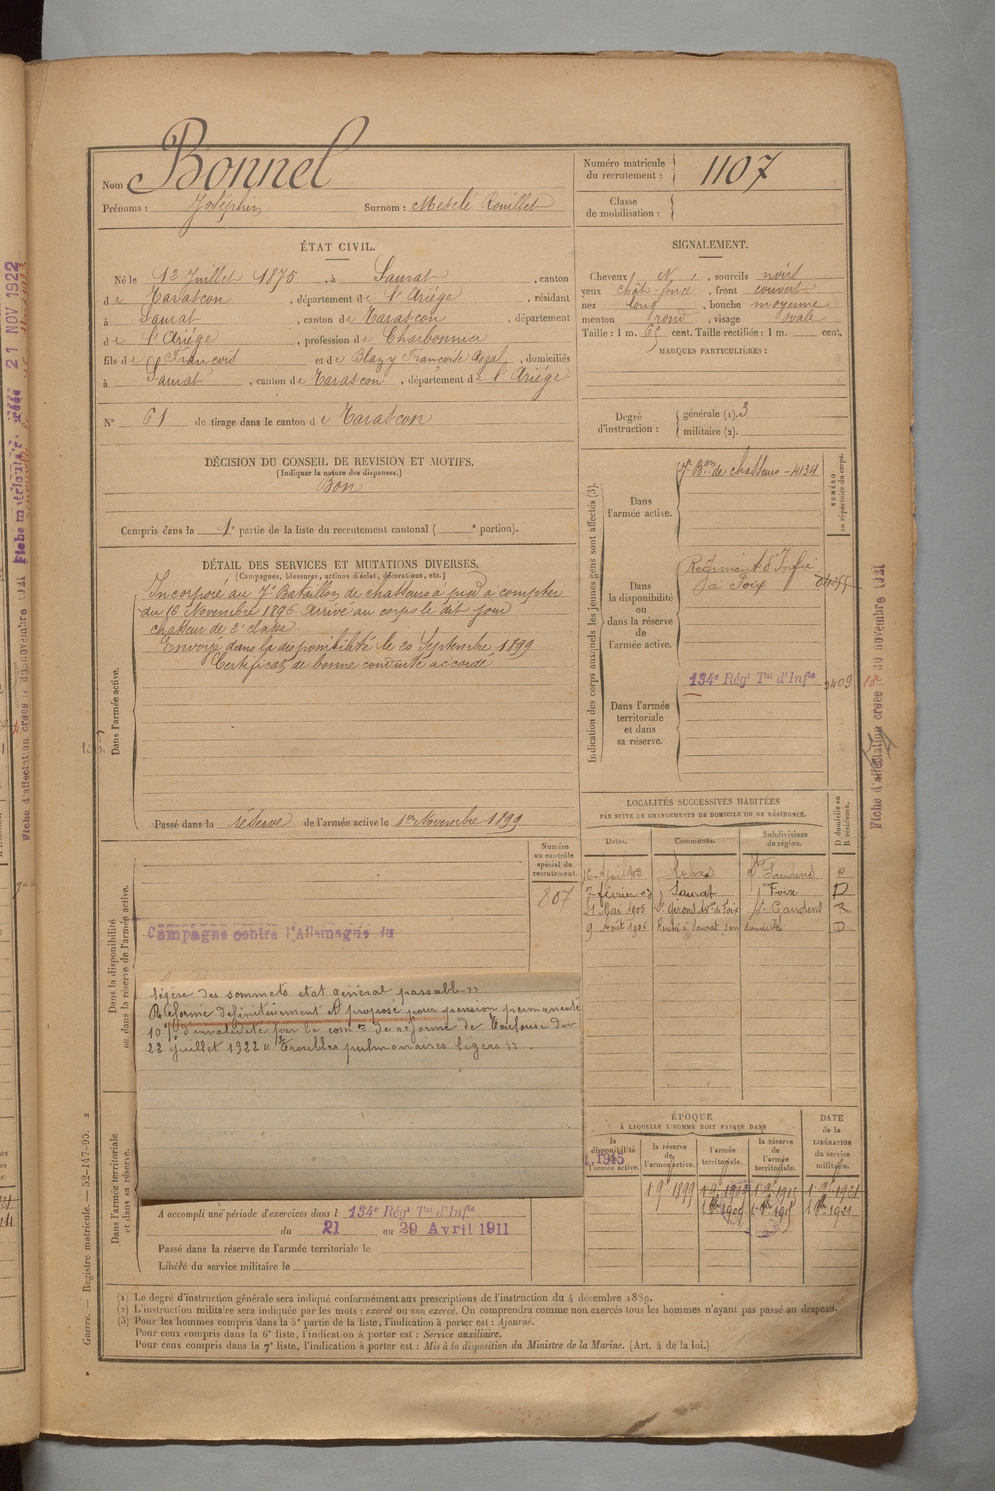 Nom Bonnel
Prénoms : Joséphin Surnom : Mesclé Rouillet
Numéro matricule du recrutement : 1107
Classe de mobilisation :
ÉTAT CIVIL.
Né le 12 Juillet 1875, à Saurat, canton
de Tarascon, département de l'Ariége, résidant
à Saurat, canton de Tarascon, département
de l'Ariége, profession de Charbonnier
fils de François et de Blazy Françoise, domiciliés
à Saurat, canton de Tarascon, département de l'Ariége
N° 61 de tirage dans le canton de Tarascon
SIGNALEMENT.
Cheveux N, sourcils noirs
yeux chât-foncé, front couvert
nez long, bouche moyenne
menton rond, visage ovale
Taille : 1 m. 65 cent. Taille rectifiée : 1 m. cent.
MARQUES PARTICULIÈRES :
Degré d'instruction :
générale (1). 3
militaire (2).
DÉCISION DU CONSEIL DE REVISION ET MOTIFS.
(Indiquer la nature des dispenses.)
Bon
Compris dans la 1e partie de la liste du recrutement cantonal ( e portion).
DÉTAIL DES SERVICES ET MUTATIONS DIVERSES.
(Campagnes, blessures, actions d'éclat, décorations, etc.)
Dans l'armée active.
Incorporé au 7e Bataillon de chasseurs à pied à compter
du 16 Novembre 1896. Arrivé au corps le dit jour
chasseur de 2e classe.
Envoyé dans la disponibilité le 20 Septembre 1899
Certificat de bonne conduite accordé
Passé dans la réserve de l'armée active le 1er Novembre 1899
Indication des corps auxquels les jeunes gens sont affectés (3).
NUMÉRO au répertoire du corps.
Dans l'armée active.
7e Bon de chasseurs - 4134
Dans la disponibilité ou dans la réserve de l'armée active.
Régiment d'Infie
à Foix
Dans l'armée territoriale et dans sa réserve.
134e Régt Tal d'Infie
LOCALITÉS SUCCESSIVES HABITÉES
PAR SUITE DE CHANGEMENTS DE DOMICILE OU DE RÉSIDENCE.
Dates. Communes. Subdivisions de région. D domicile ou R résidence.
7 février 03 Saurat Foix D
21 Mai 1905 St Girons St Gaudens R
9 Août 1906 Rentré à Saurat son domicile D
Dans la disponibilité ou dans la réserve de l'armée active.
Numéro au contrôle spécial du recrutement.
807
Campagne contre l'Allemagne du
légère des sommets etat général passable »
Réformé définitivement et proposé pour pension permanente
10 % d'invalidité par la comon de réforme de Toulouse du
22 juillet 1922 « Troubles pulmonaires légers ».
Dans l'armée territoriale et dans sa réserve.
A accompli une période d'exercices dans l 134e Régt Tal d'Infie
du 21 au 29 Avril 1911
Passé dans la réserve de l'armée territoriale le
Libéré du service militaire le
ÉPOQUE
À LAQUELLE L'HOMME DOIT PASSER DANS
la disponibilité de l'armée active. la réserve de l'armée active. l'armée territoriale. la réserve de l'armée territoriale.
DATE de la LIBÉRATION du service militaire.
1915
(1) Le degré d'instruction générale sera indiqué conformément aux prescriptions de l'instruction du 4 décembre 1889.
(2) L'instruction militaire sera indiquée par les mots : exercé ou non exercé. On comprendra comme non exercés tous les hommes n'ayant pas passé au drapeau.
(3) Pour les hommes compris dans la 5e partie de la liste, l'indication à porter est : Ajourné.
Pour ceux compris dans la 6e liste, l'indication à porter est : Service auxiliaire.
Pour ceux compris dans la 7e liste, l'indication à porter est : Mis à la disposition du Ministre de la Marine. (Art. 4 de la loi.)
Guerre. — Registre matricule. — 52-147-95. 2
Fiche d'affectation créée 30 novembre 1921
Fiche matriculaire créée 21 NOV 1922